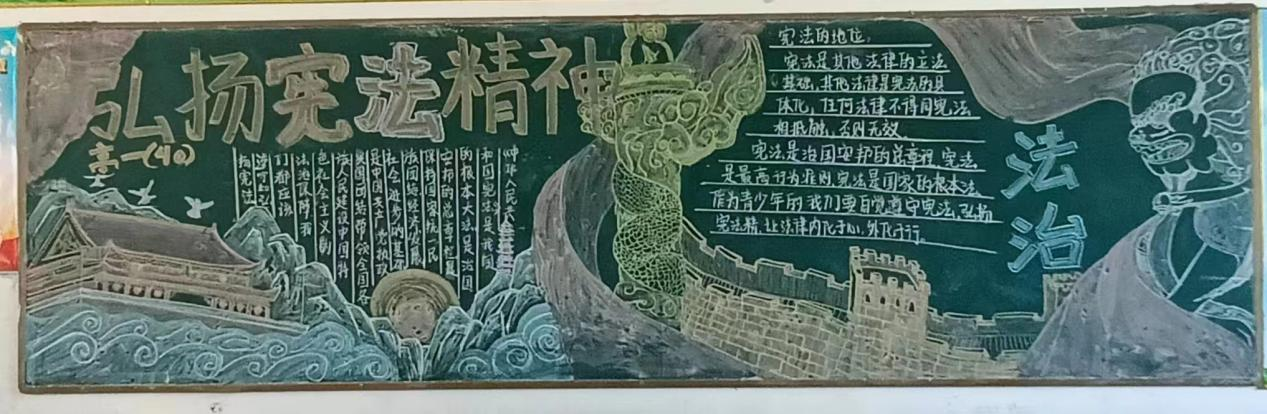 弘扬宪法精神
高一(10)
中华人民共
和国宪法是我国
的根本大法是治国
安邦的总章程是
保持国家统一民
族团结经济发展
社会进步的基础
是中国共产党执政
兴国团结带领全国各
族人民建设中国特
色社会主义制
法治保障我
们都应该
弘
扬宪法
宪法的地位。
宪法是其他法律的立法
基础,其他法律是宪法的具
体化,任何法律不得同宪法
相抵触,否则无效。
宪法是治国安邦的总章程,宪法
是最高行为准则,宪法是国家的根本法。
作为青少年的我们要自觉遵守宪法,弘扬
宪法精,让法律内化于心,外化于行。
法治